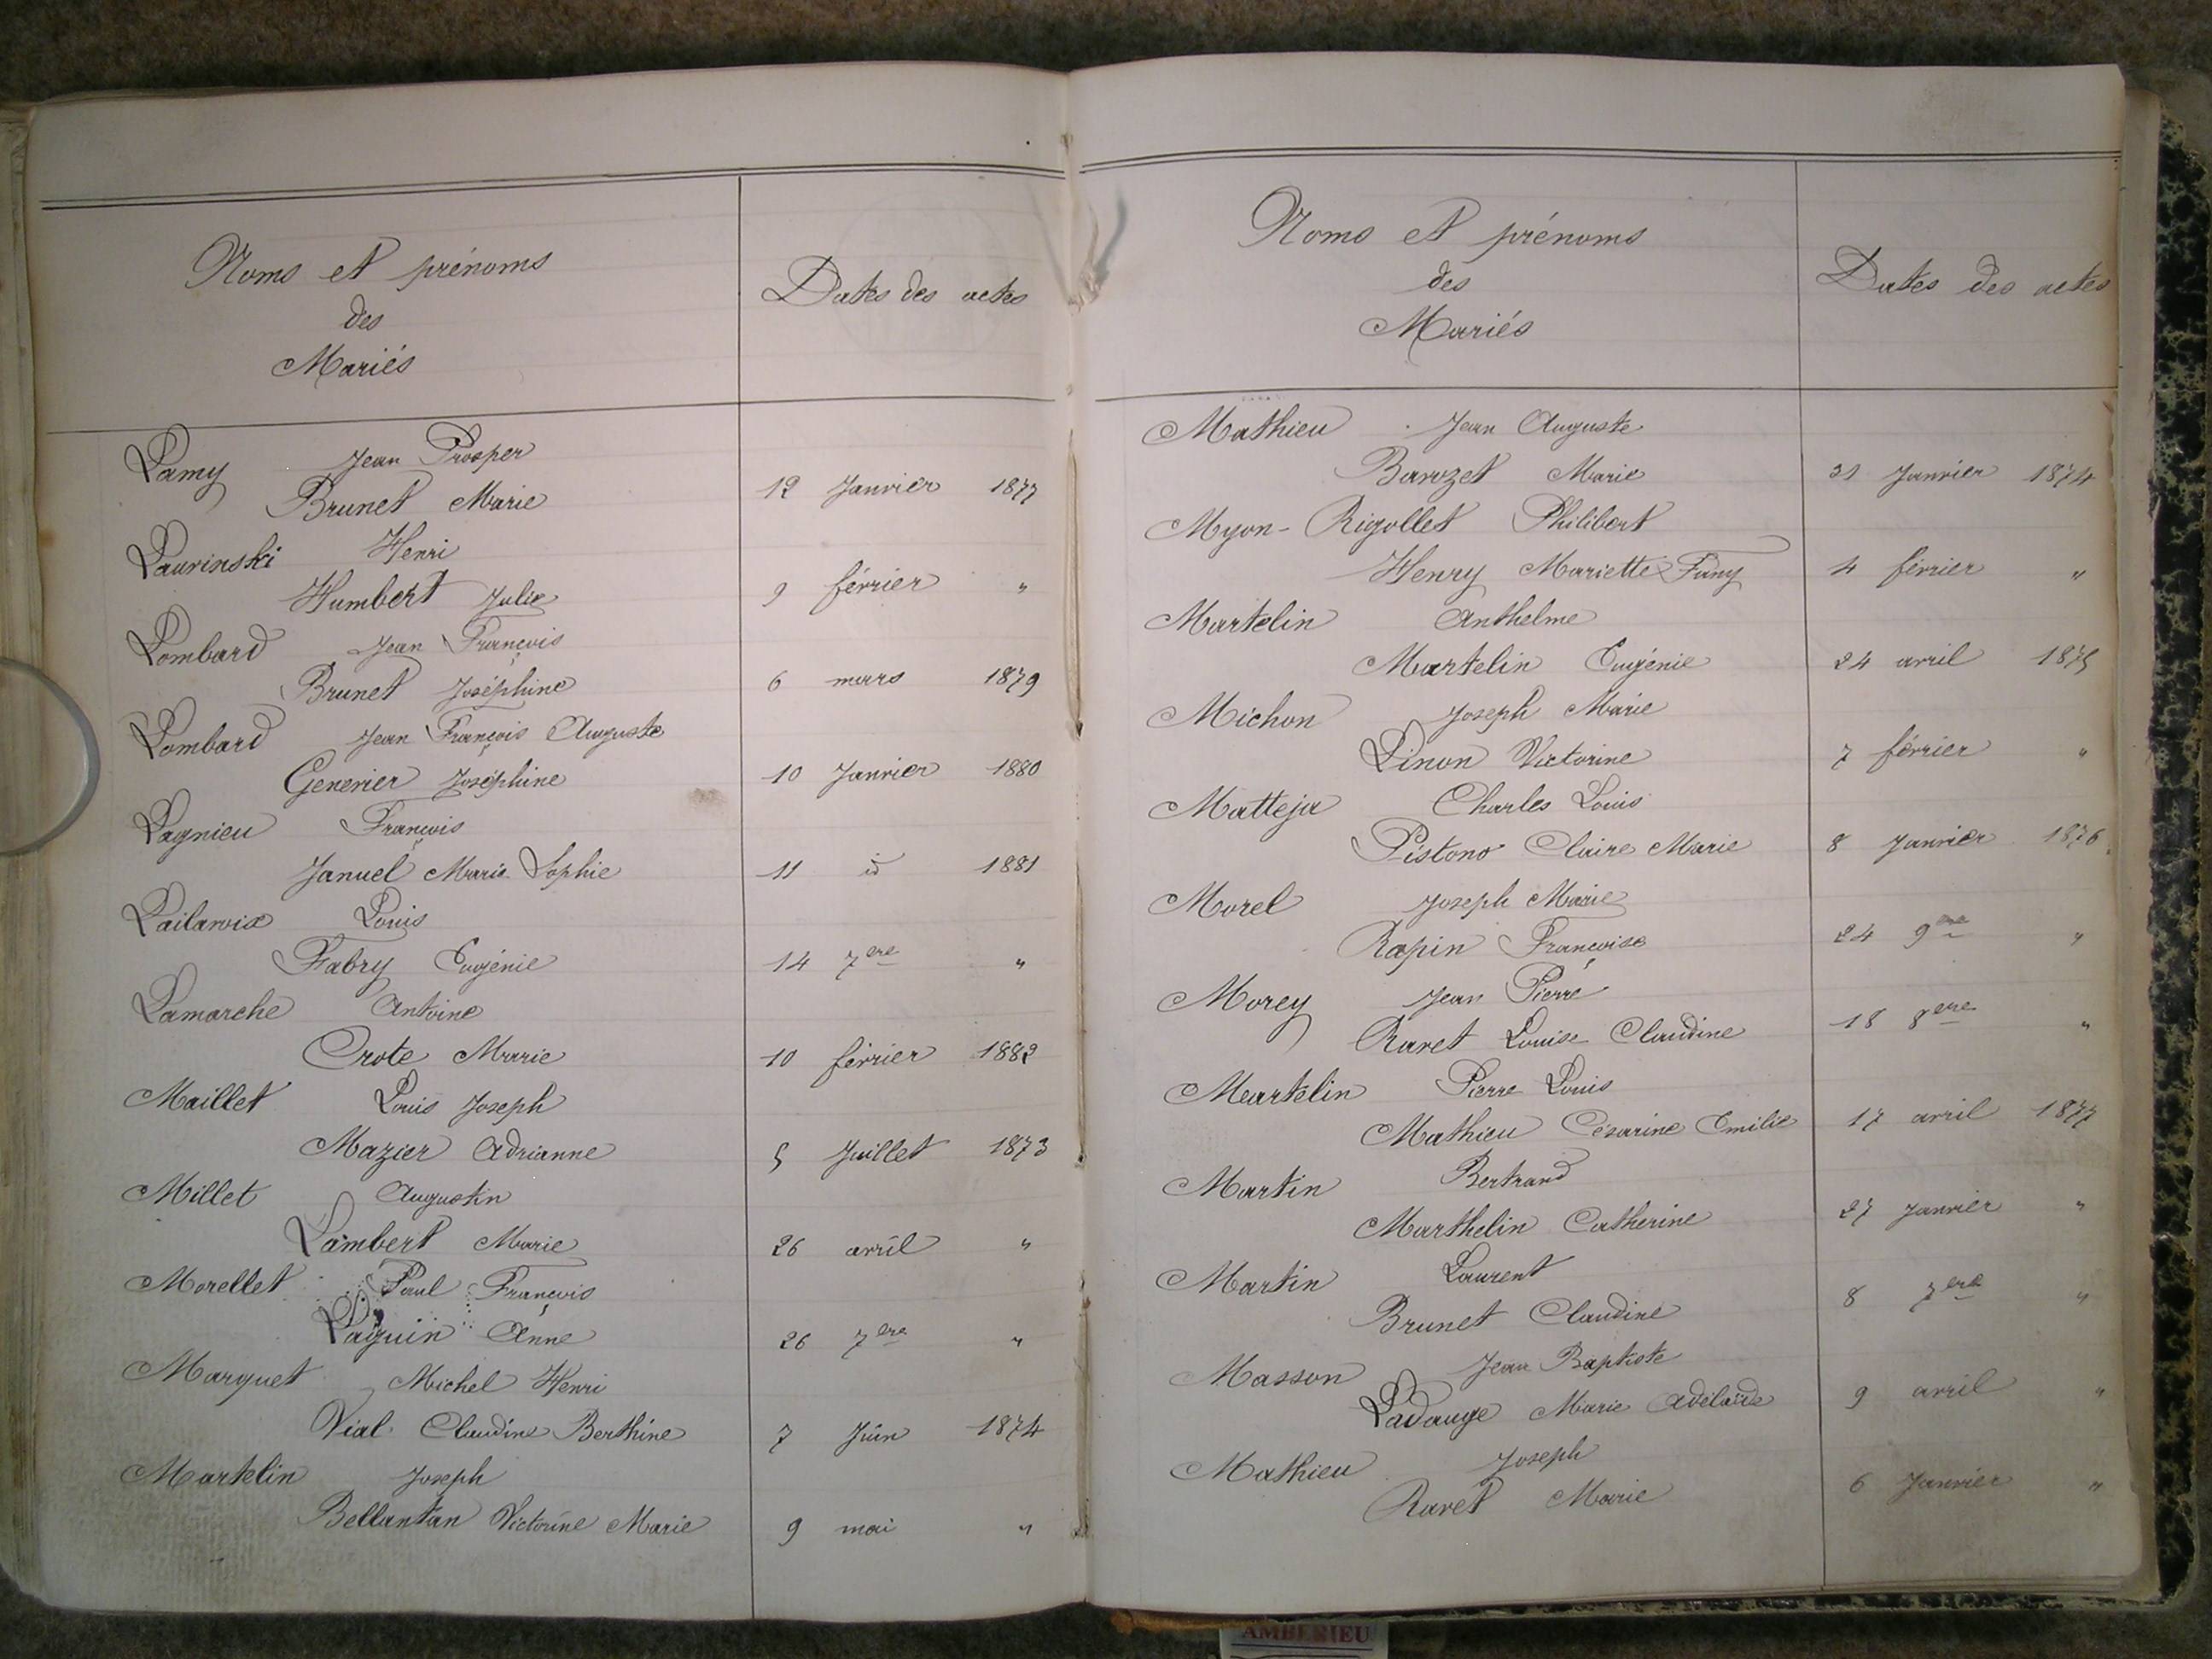 Noms et prénoms
des
Mariés
Dates des actes
Lamy Jean Prosper
Brunet Marie 12 Janvier 1877
Laurinski Henri
Humbert Julie 9 février "
Lombard Jean François
Brunet Joséphine 6 mars 1879
Lombard Jean François Auguste
Genevier Joséphine 10 Janvier 1880
Lagnieu François
Januel Marie Sophie 11 id 1881
Louis
Fabry Eugénie 14 7ere "
Lamarche Antoine
Crote Marie 10 février 1882
Maillet Louis Joseph
Mazier Adrianne 5 Juillet 1873
Millet Augustin
Lambert Marie 26 avril "
Morellet Paul François
Paguin Anne 26 7ere "
Marquet Michel Henri
Vial Claudine Berthine 7 Juin 1874
Martelin Joseph
Bellantan Victorine Marie 9 mai "
Noms et prénoms
des
Mariés
Dates des actes
Mathieu Jean Auguste
Barozet Marie 31 Janvier 1874
Myon-Rigollet Philibert
Henry Mariette Fany 4 février "
Martelin Anthelme
Martelin Eugénie 24 avril 1875
Michon Joseph Marie
Linon Victorine 7 février "
Matteja Charles Louis
Pistono Claire Marie 8 Janvier 1876
Morel Joseph Marie
Rapin Françoise 24 9ere "
Morey Jean Pierre
Ravet Louise Claudine 18 8ere "
Martelin Pierre Louis
Mathieu Césarine Emilie 17 avril 1877
Martin Bertrand
Marthelin Catherine 27 Janvier "
Martin Laurent
Brunet Claudine 8 7ere "
Masson Jean Baptiste
Ladauge Marie Adélaïde 9 avril "
Mathieu Joseph
Ravet Marie 6 Janvier "
AMBERIEU